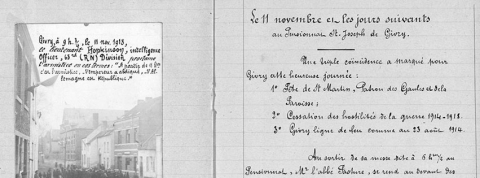 Givry, à 9 h. ½, le 11 nov. 1918,
le lieutenant Hopkinson, intelligence
Officer, 63rd (R.N) Division proclame
l'armistice en ces termes: "A partir de 11 h.
c'est l'armistice, l'Empereur a abdiqué, l'Al-
lemagne est République."
Le 11 novembre et les jours suivants
au Pensionnat St. Joseph de Givry.
Une triple coïncidence a marqué pour
Givry cette heureuse journée:
1° Fête de St Martin, Patron des Gaules et de la
Paroisse;
2° Cessation des hostilités de la guerre 1914-1918.
3° Givry ligne de feu comme au 23 août 1914.
Au sortir de sa messe dite à 6 h ½ au
Pensionnat, Mr l'abbé, se rend au devant des